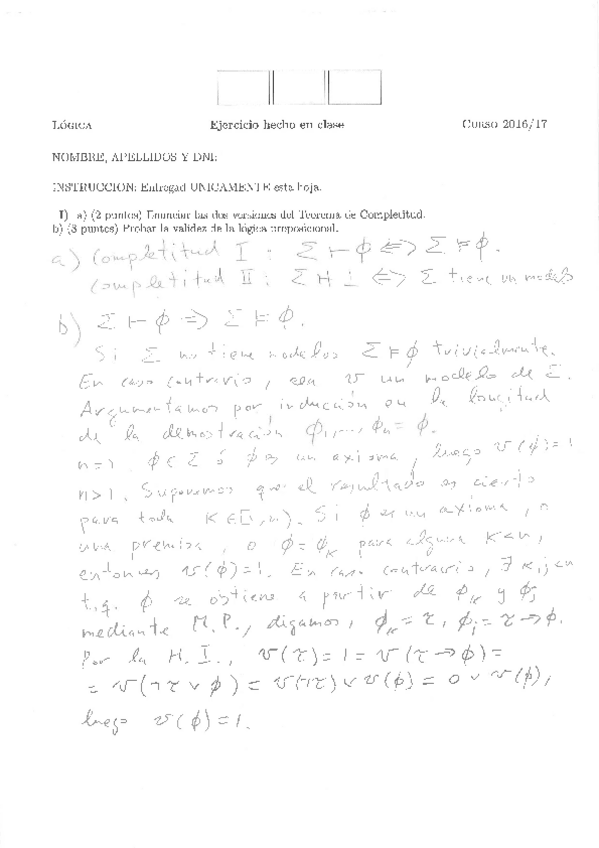 LÓGICA Ejercicio hecho en clase CURSO 2016/17
NOMBRE, APELLIDOS Y DNI:
INSTRUCCION: Entregad UNICAMENTE esta hoja.
I) a) (2 puntos) Enunciar las dos versiones del Teorema de Completitud.
b) (3 puntos) Probar la validez de la lógica proposicional.
a) Completitud I : Σ ⊢ φ ⟺ Σ ⊨ φ.
Completitud II : Σ ⊬ ⊥ ⟺ Σ tiene un modelo
b) Σ ⊢ φ ⟹ Σ ⊨ φ.
Si Σ no tiene modelos Σ ⊨ φ trivialmente.
En caso contrario, sea v un modelo de Σ.
Argumentamos por inducción en la longitud
de la demostración φ₁,...,φₙ = φ.
n=1 φ ∈ Σ ó φ es un axioma, luego v(φ)=1
n>1. Suponemos que el resultado es cierto
para todo K ∈ [1,n). Si φ es un axioma, o
una premisa, o φ = φₖ para algun K<n,
entonces v(φ)=1. En caso contrario, ∃ k,j<n
t.q. φ se obtiene a partir de φₖ y φⱼ
mediante M.P., digamos, φₖ = τ, φⱼ = τ → φ.
Por la H.I., v(τ) = 1 = v(τ → φ) =
= v(¬τ ∨ φ) = v(¬τ) ∨ v(φ) = 0 ∨ v(φ),
luego v(φ) = 1.